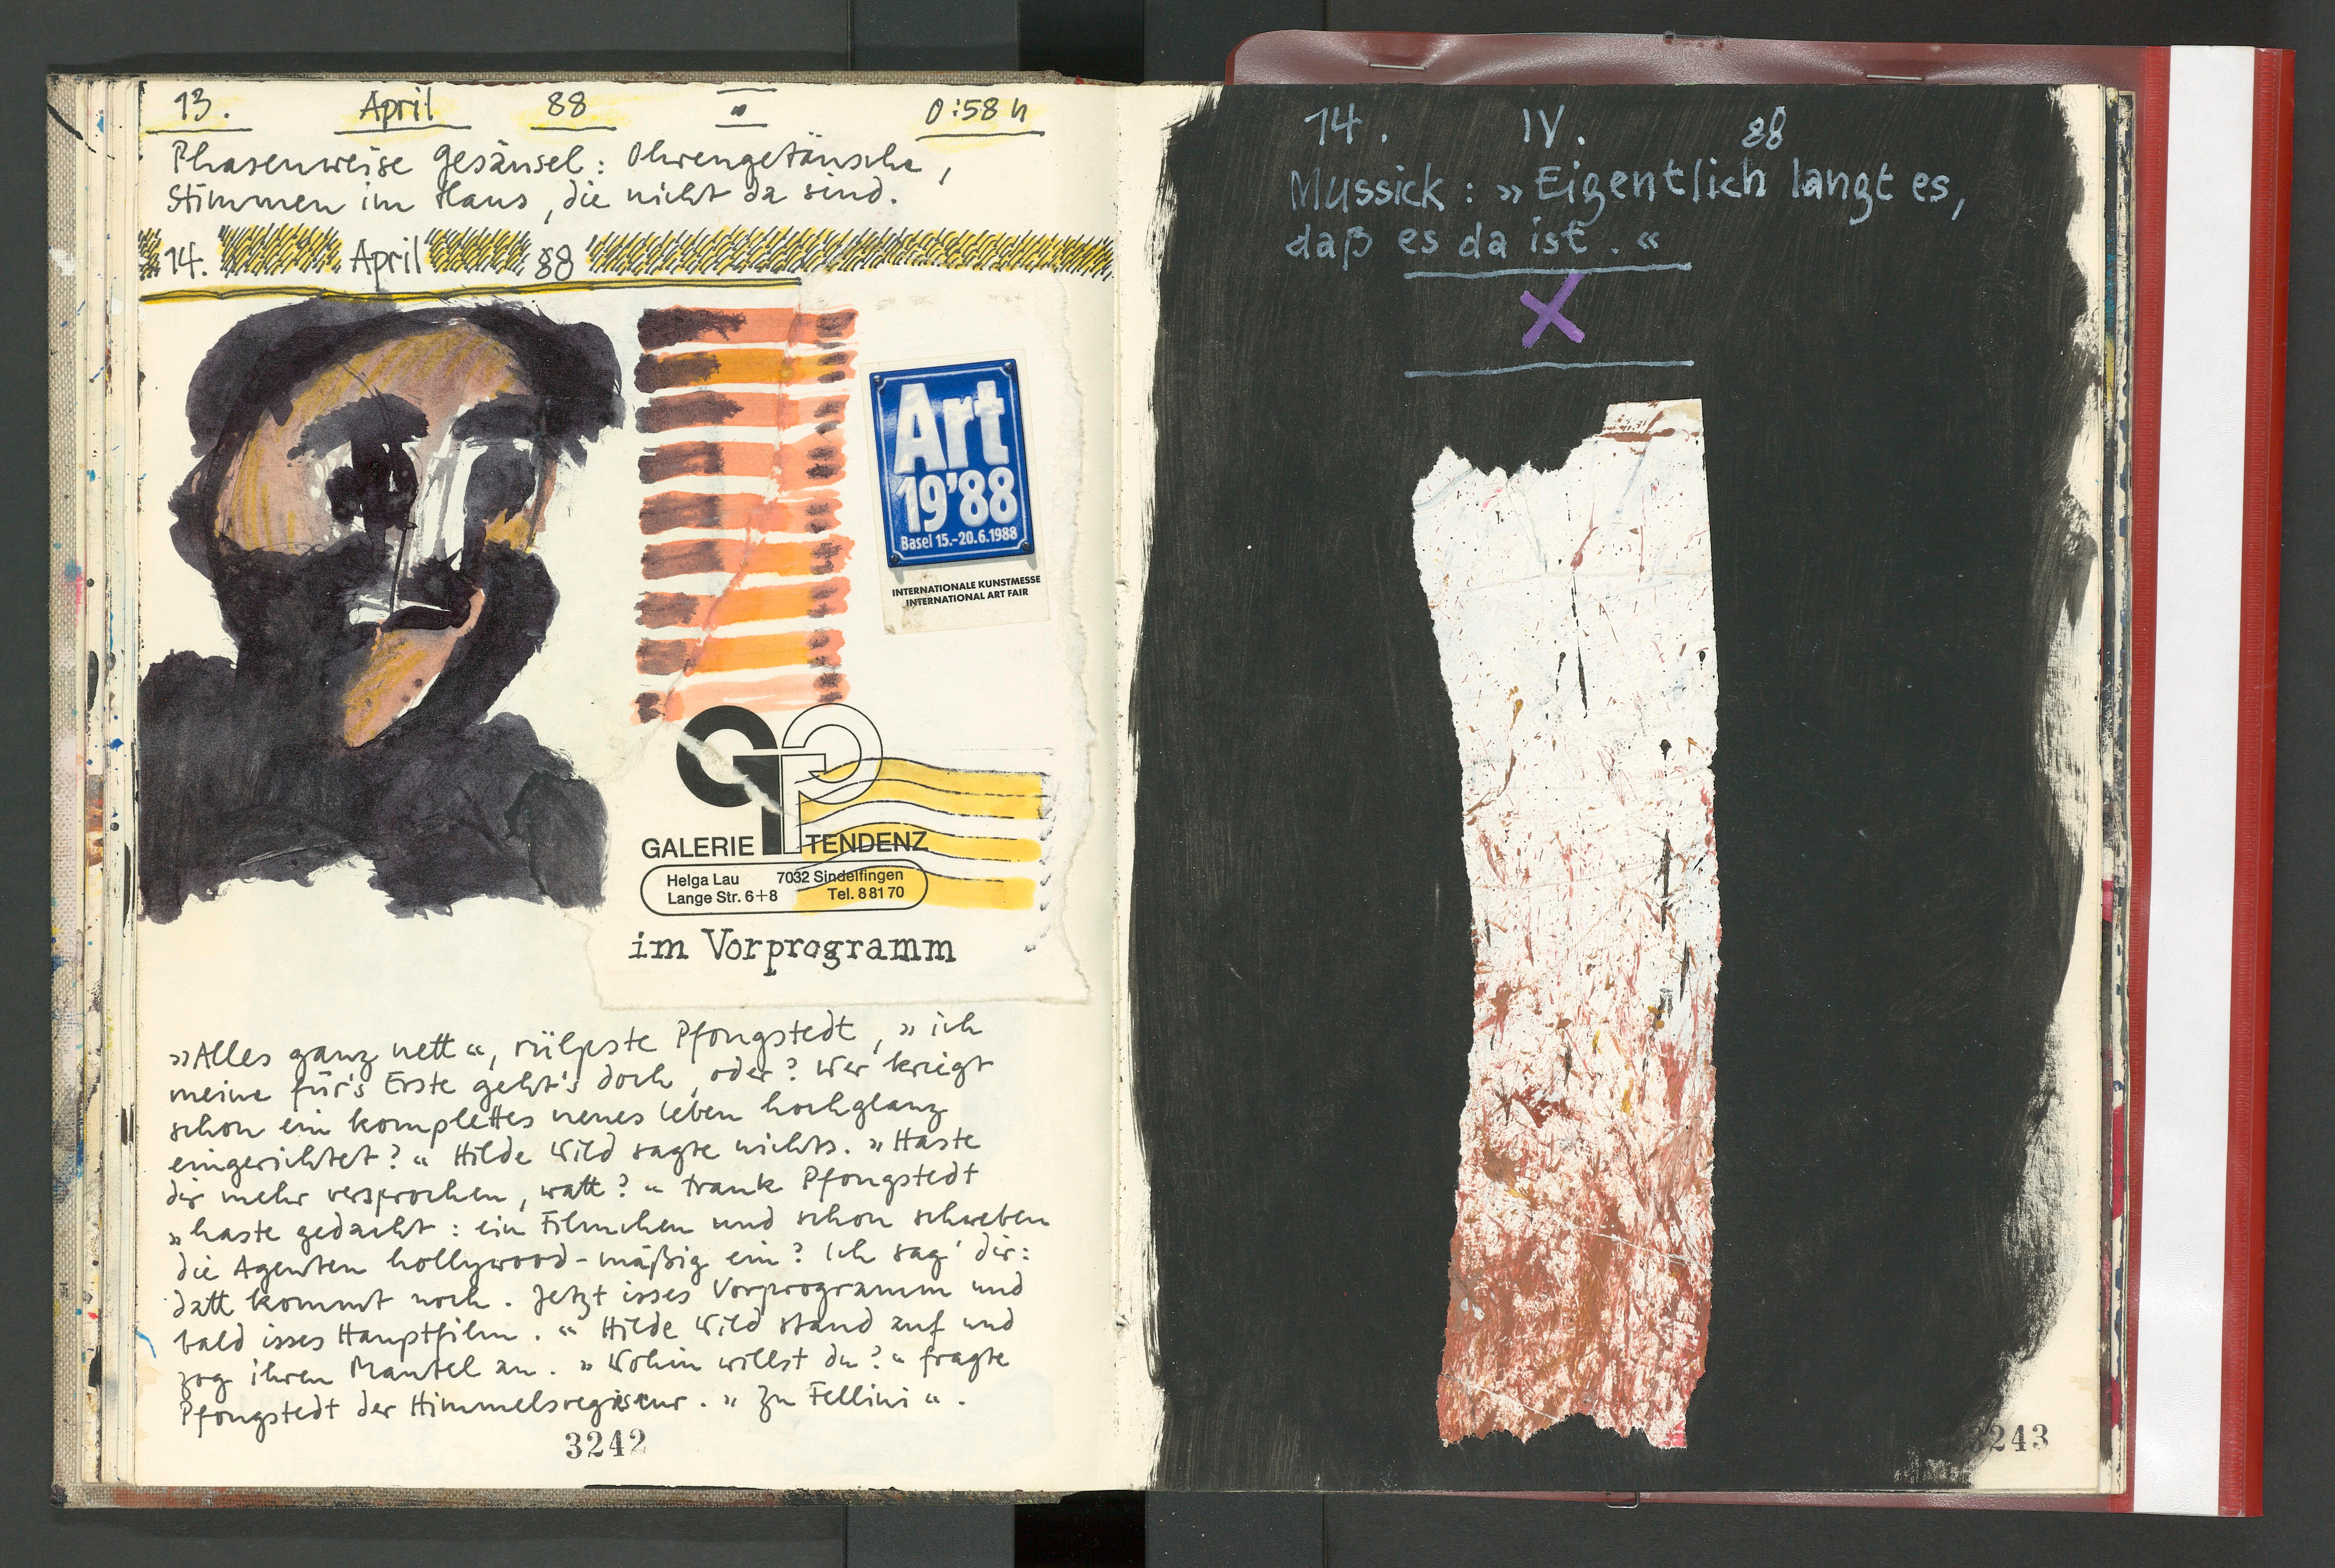 13. April 88 " 0:58 h
Phasenweise Gesäusel: Ohrengetäusche,
Stimmen im Haus, die nicht da sind.
14. April 88
Art
19'88
Basel 15.-20.6.1988
INTERNATIONALE KUNSTMESSE
INTERNATIONAL ART FAIR
GALERIE TENDENZ
Helga Lau 7032 Sindelfingen
Lange Str. 6+8 Tel. 8 81 70
im Vorprogramm
»Alles ganz nett«, rülpste Pfongstedt, »ich
meine für's Erste geht's doch, oder? Wer kriegt
schon ein komplettes neues Leben hochglanz
eingerichtet?« Hilde Wild sagte nichts. »Haste
dir mehr versprochen, watt?« trank Pfongstedt
»haste gedacht: ein Filmchen und schon schweben
die Agenten hollywood-mäßig ein? Ich sag' dir:
datt kommt noch. Jetzt isses Vorprogramm und
bald isses Hauptfilm.« Hilde Wild stand auf und
zog ihren Mantel an. »Wohin willst du?« fragte
Pfongstedt der Himmelsregisseur. »Zu Fellini«.
3242
14. IV. 88
Mussick: »Eigentlich langt es,
daß es da ist.«
X
3243